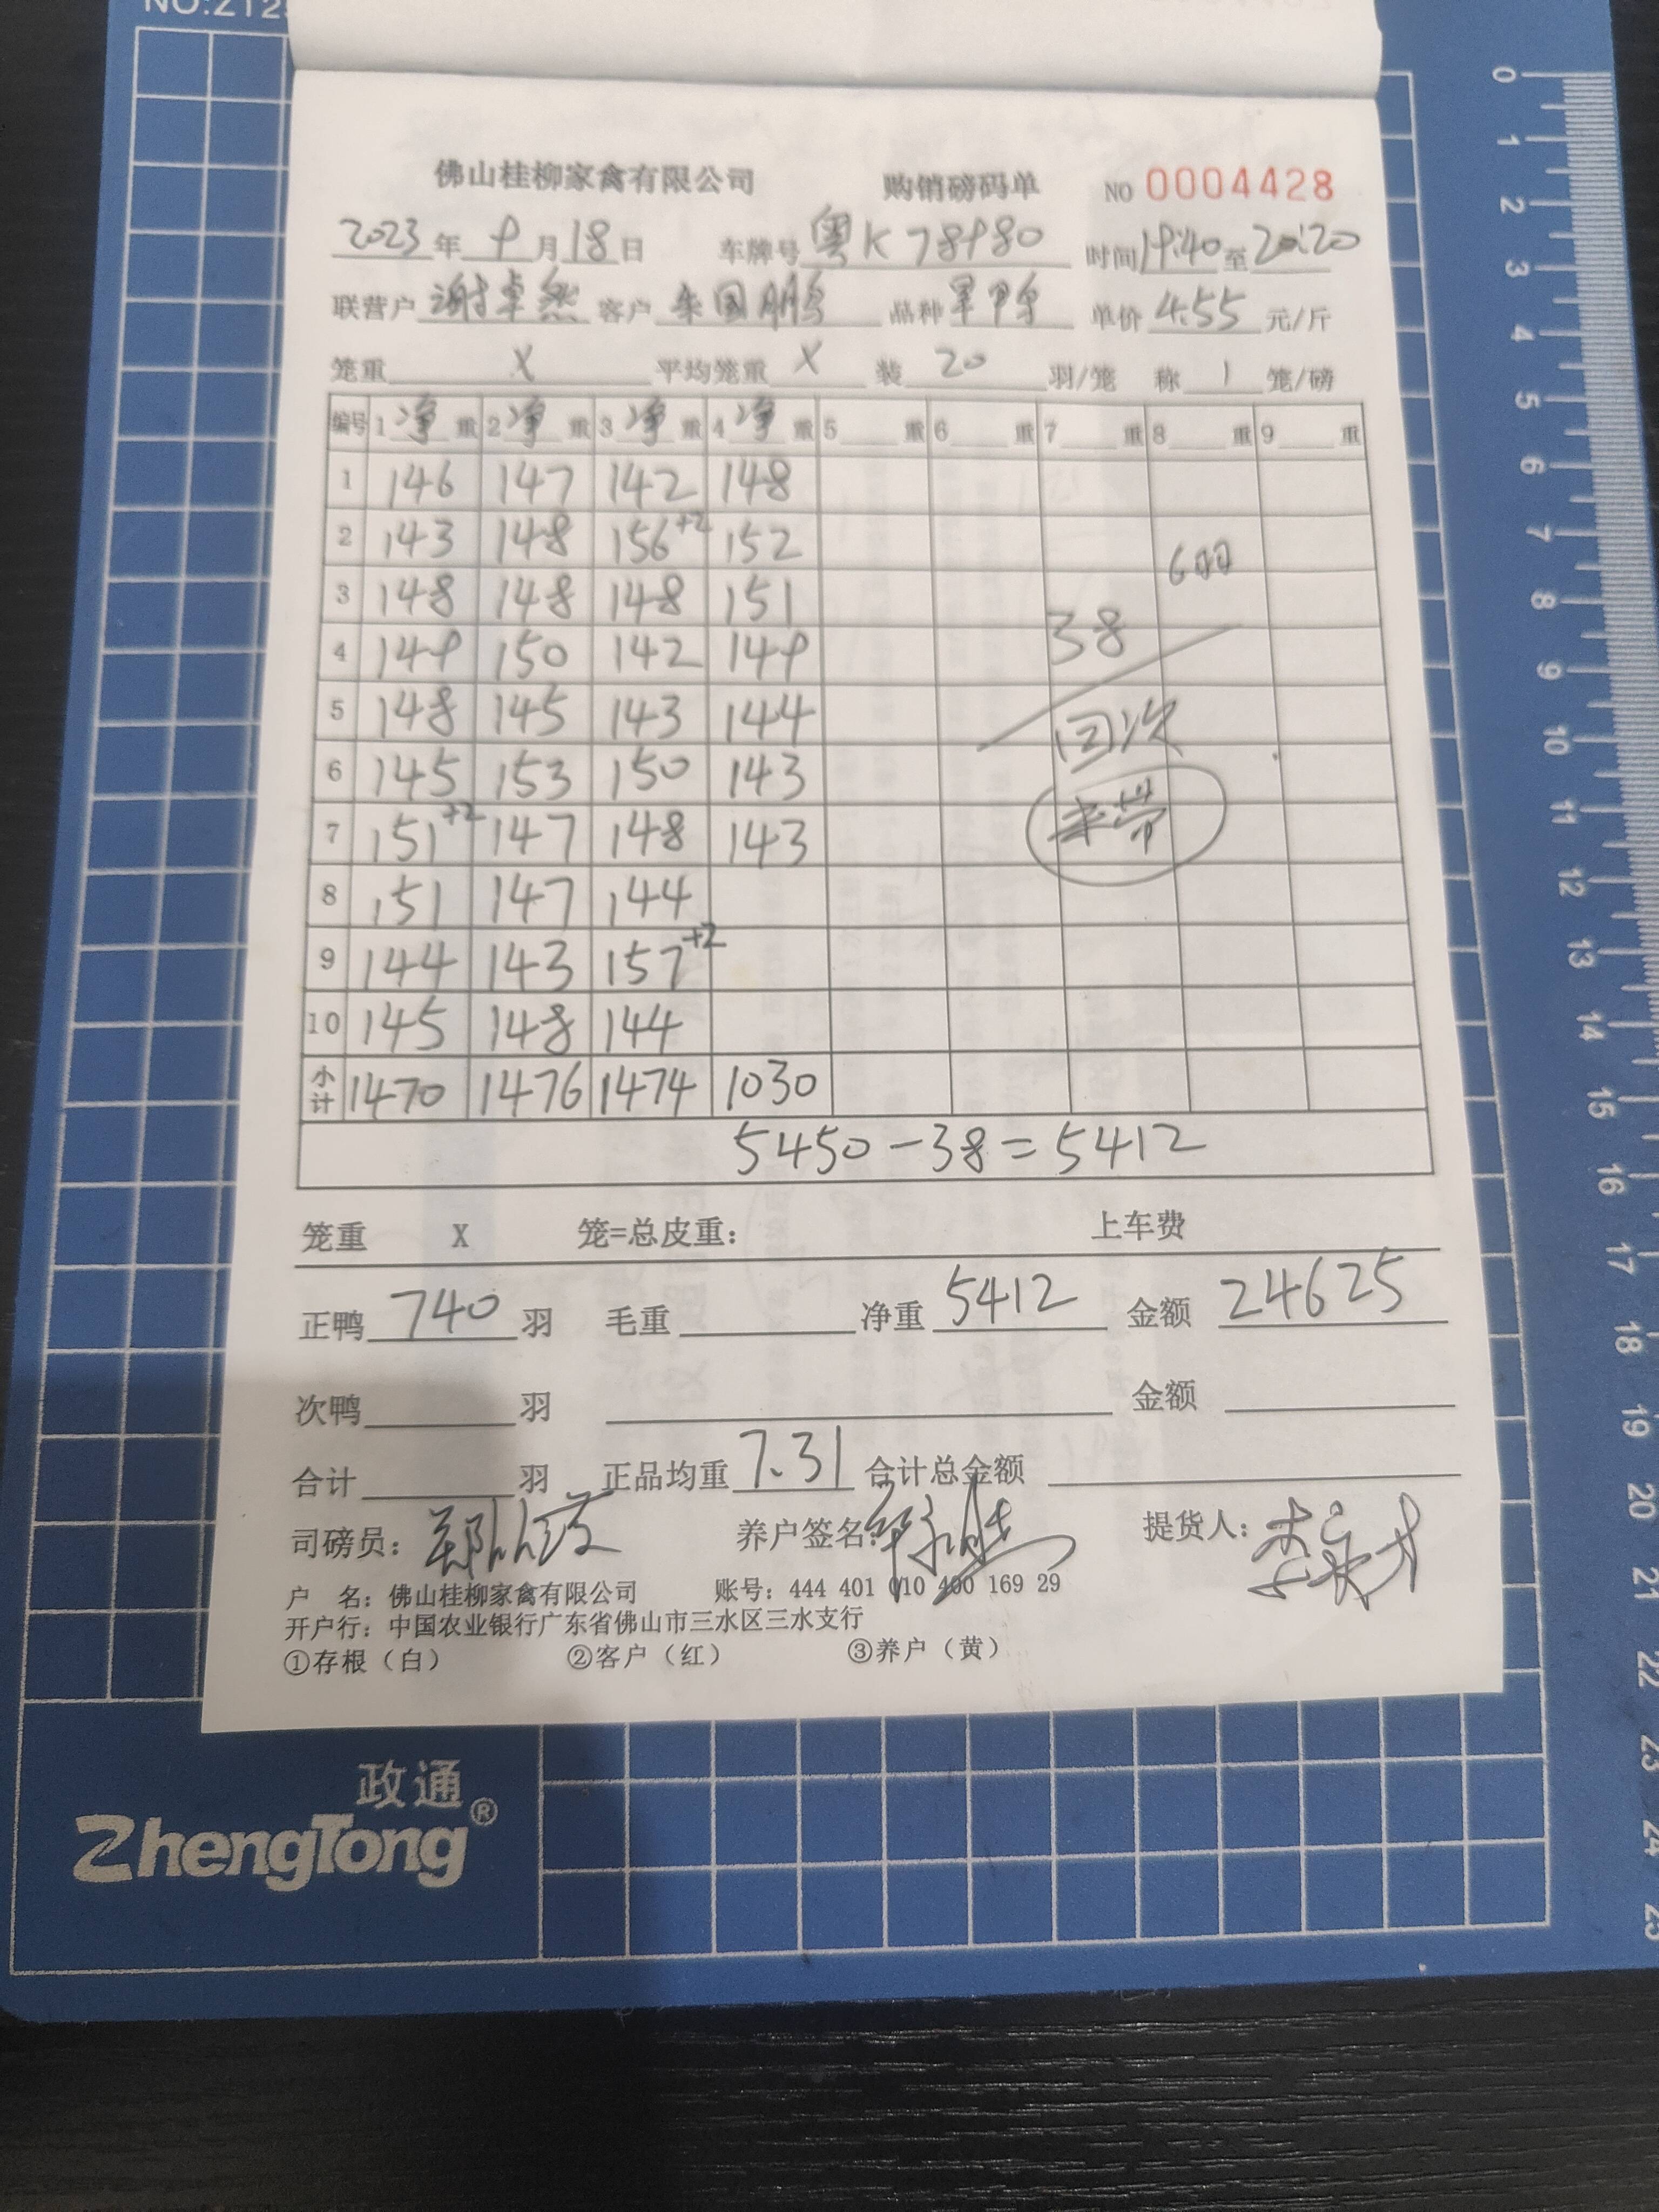 佛山桂柳家禽有限公司 购销磅码单 NO 0004428
2023年 9月18日 车牌号 粤K78980 时间19:40至20:20
联营户 谢卓然 客户 国鹏 品种 单价 4.55 元/斤
笼重 X 平均笼重 X 装 20 羽/笼 称 1 笼/磅
编号 1 净 重 2 净 重 3 净 重 4 净 重 5 重 6 重 7 重 8 重 9 重
1 146 147 142 148
2 143 148 156+2 152
3 148 148 148 151
4 149 150 142 149
5 148 145 143 144
6 145 153 150 143
7 151+2 147 148 143
8 151 147 144
9 144 143 157+2
10 145 148 144
小计 1470 1476 1474 1030
38
回次
5450-38=5412
笼重 X 笼=总皮重: 上车费
正鸭 740 羽 毛重 净重 5412 金额 24625
次鸭 羽 金额
合计 羽 正品均重 7.31 合计总金额
司磅员: 养户签名: 提货人:
户 名: 佛山桂柳家禽有限公司 账号: 444 401 010 400 169 29
开户行: 中国农业银行广东省佛山市三水区三水支行
①存根（白） ②客户（红） ③养户（黄）
0 1 2 3 4 5 6 7 8 9 10 11 12 13 14 15 16 17 18 19 20 21 22 23 24 25
政通
ZhengTong®